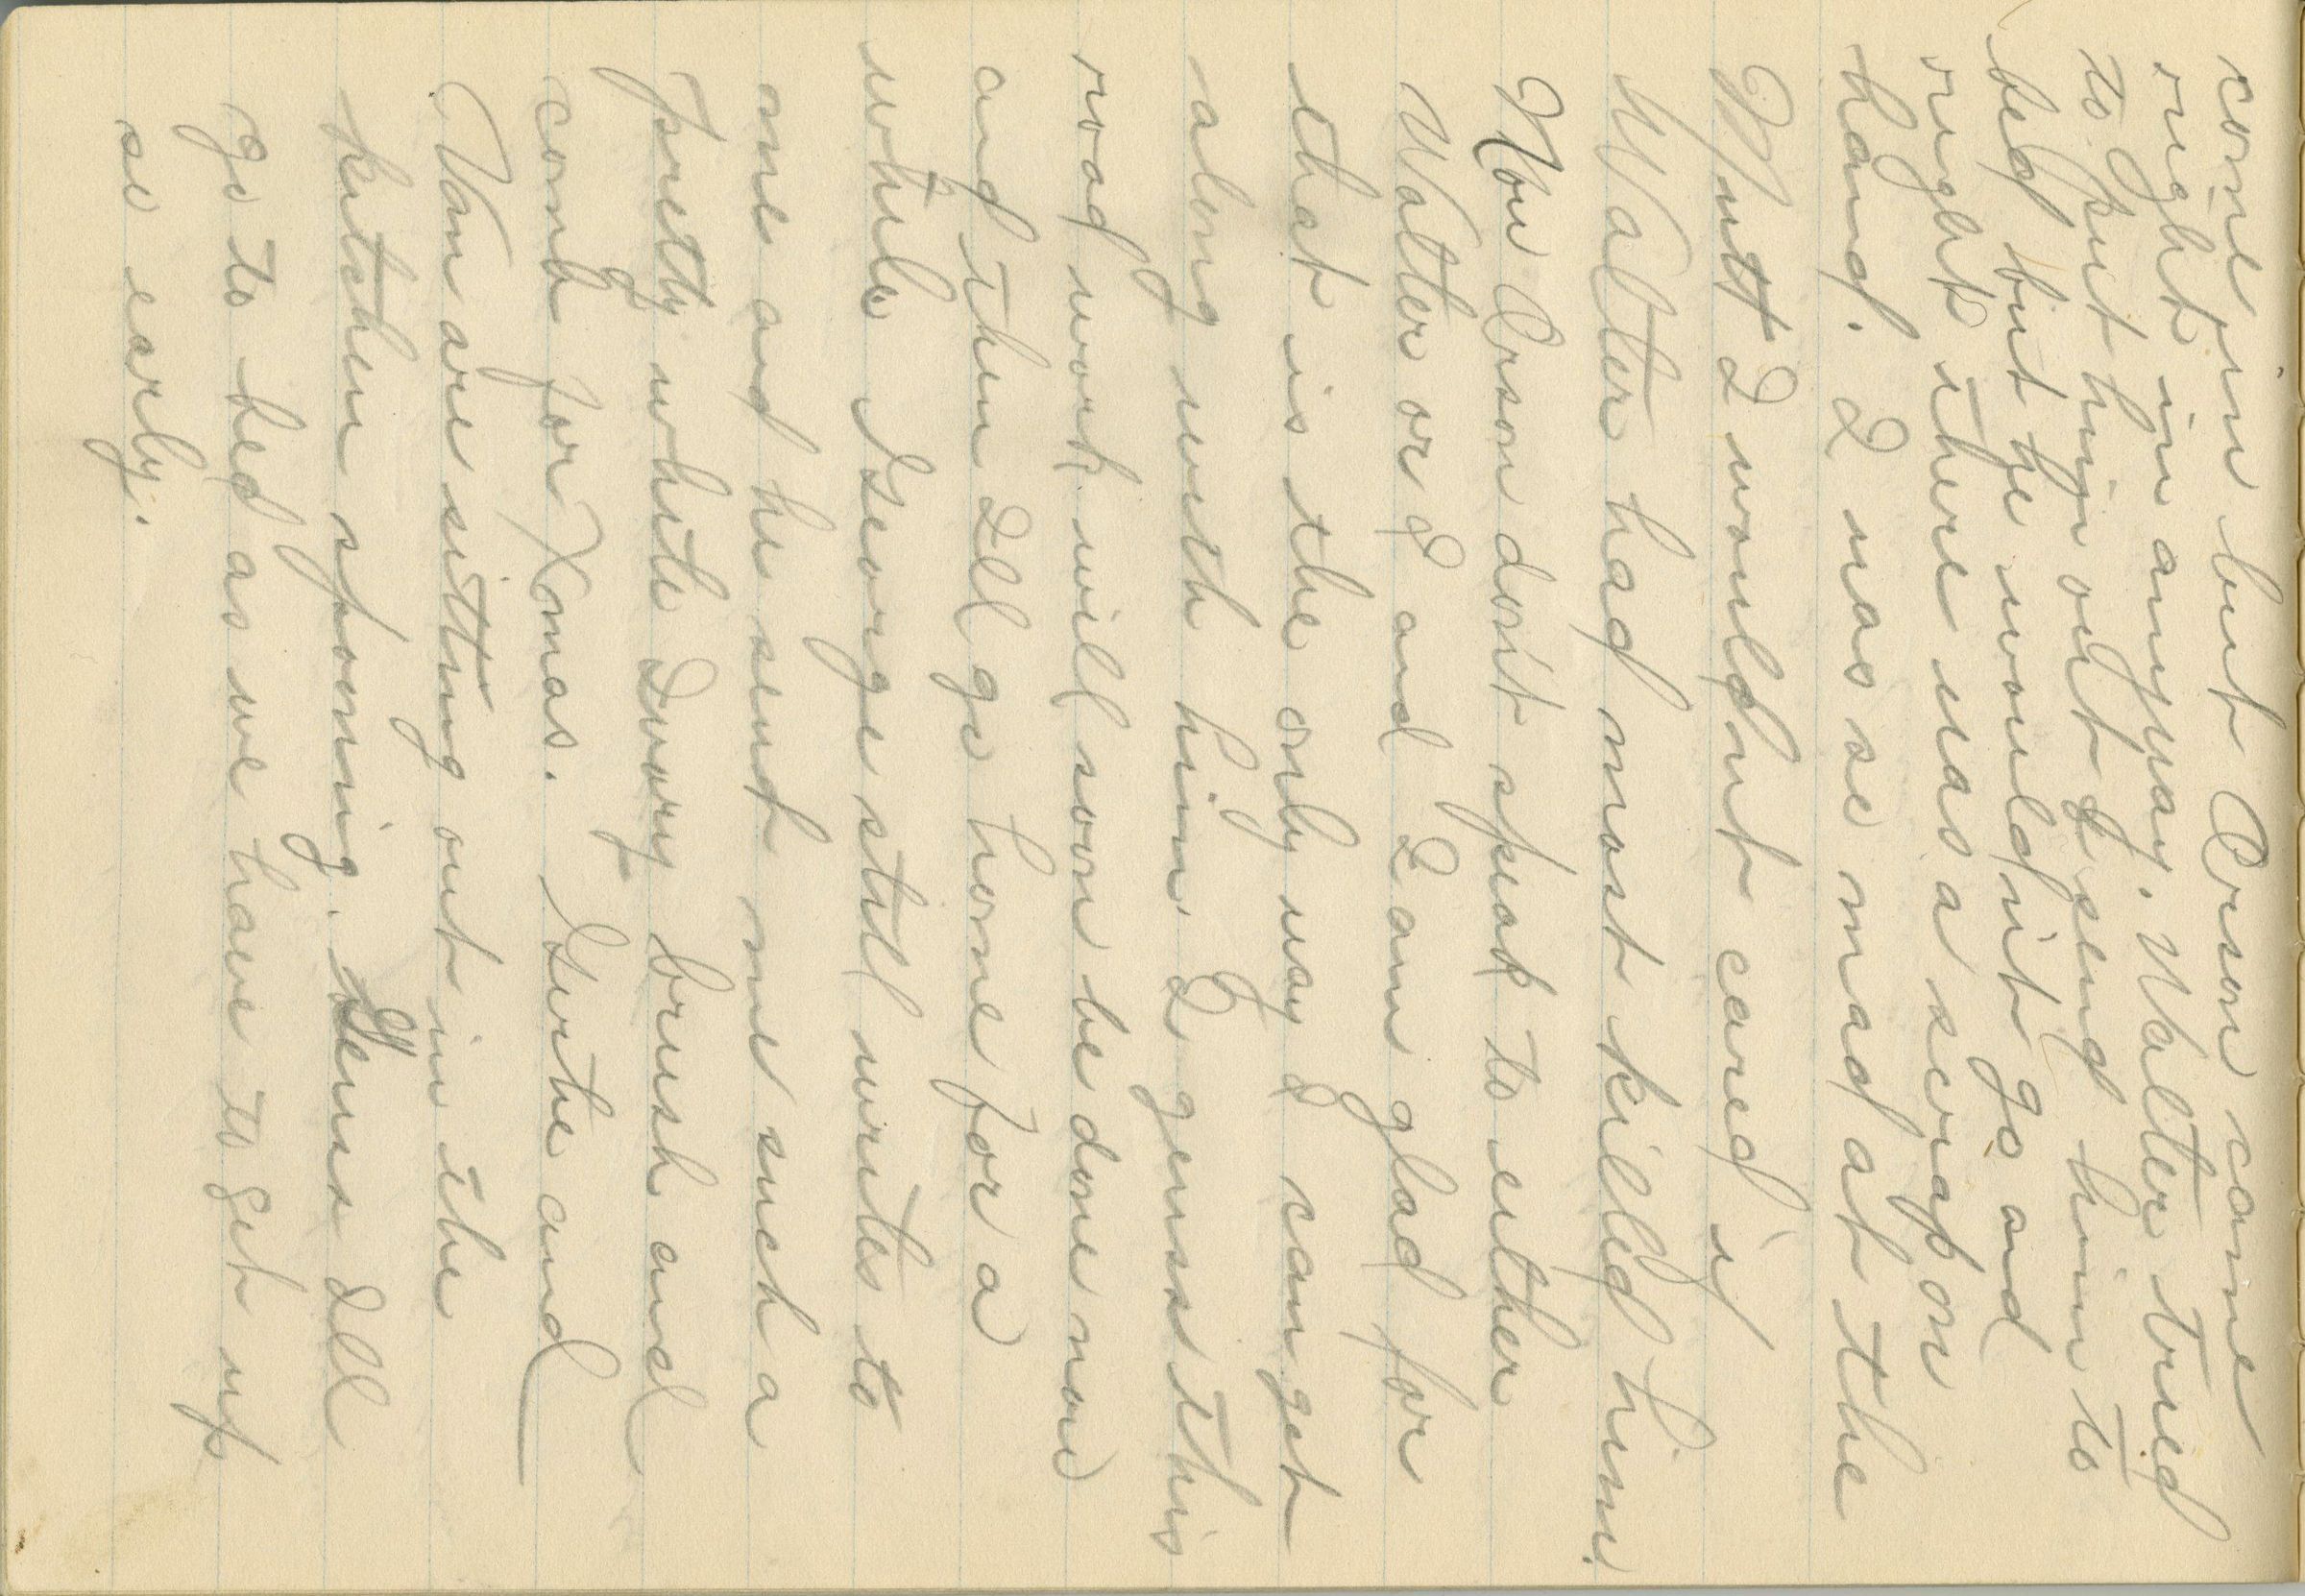 come in but Orson came
right in anyway. Walter tried
to put him out & send him to
bed but he wouldn't go and
right there was a scrap on
hand. I was so mad at the
Mutt I wouldnt cared if
Walter had most killed him.
Now Orson don't speak to either
Walter or I and I am glad for
that is the only way I can get
along with him. I guess this
road work will soon be done now
and then Il go home for a
while. George still writes to
me and he sent me such a
pretty white Ivory brush and
comb for Xmas. Gertie and
Van are sitting out in the
kitchen spooning. Guess Ill
go to bed as we have to get up
so early.